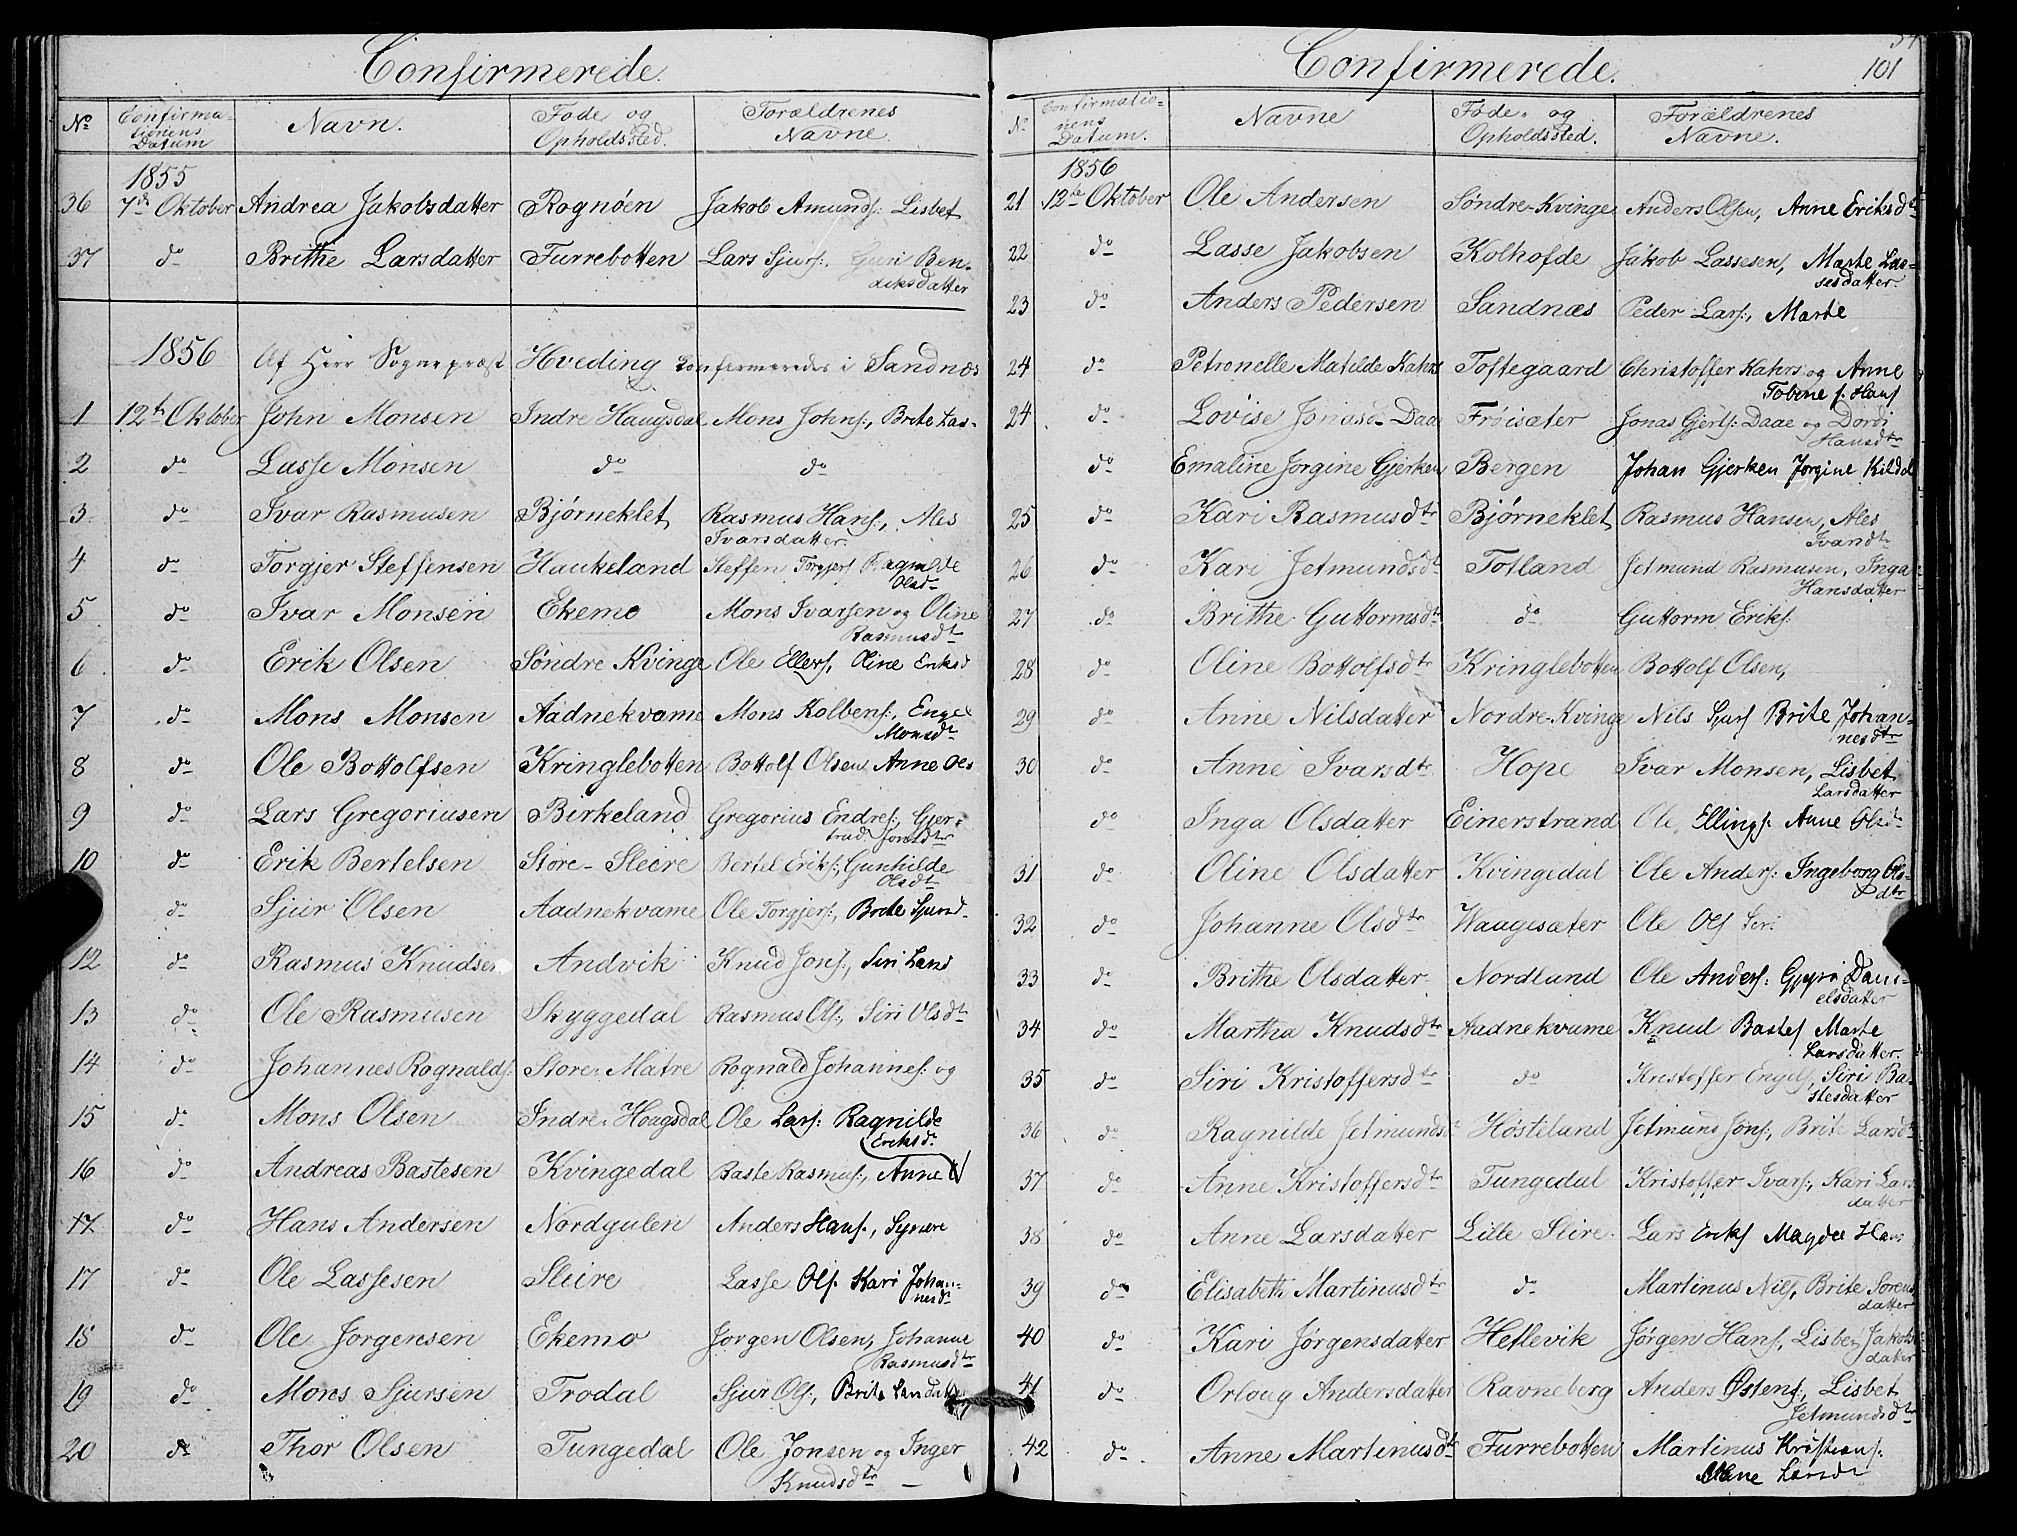 Confirmerede.
No Confirmationens Datum Navn. Føde og Opholdssted. Forældrenes Navne.
1855
36 7de Oktober Andrea Jakobsdatter Rognøen Jakob Amunds: Lisbet
37 do Brithe Larsdatter Furrebotten Lars Sjurs:, Guri Ben-
diksdatter
1856 Af Herr Sognepræst Hveding confermeredes i Sandnæs
1 12te Oktober John Monsen Indre Haugsdal Mons Johns:, Brite Las-
2 do Lasse Monsen do do
3 do Ivar Rasmusen Bjørneklet Rasmus Hans:, Ales
Ivarsdatter.
4 do Torgjer Steffensen Haukeland Steffen Torgjers Ragnilde
Olsd-
5 do Ivar Monsen Ekemo Mons Ivarsen og Oline
Rasmusdtr
6 do Erik Olsen Søndre Kvinge Ole Ellers, Oline Eriksd
7 do Mons Monsen Aadnekvame Mons Kolbens:, Engel
Monsdtr
8 do Ole Bottolfsen Kringlebotten Bottolf Olsen Anne Ols
9 do Lars Gregoriusen Birkeland Gregorius Endres:, Gjer-
trud Jonsdtr
10 do Erik Bertelsen Store-Sleire Bertel Eriks:, Gunhilde
Olsdtr
do Sjur Olsen Aadnekvame Ole Torgjers:, Brite Sjursd-
12 do Rasmus Knudsen Andvik Knud Jons:, Siri Larsd
13 do Ole Rasmusen Skyggedal Rasmus Ols:, Siri Olsdtr
14 do Johannes Rognalds: Store-Matre Rognald Johannes: og
15 do Mons Olsen Indre-Hougsdal Ole Lars: Ragnilde
Eriksd-
16 do Andreas Bastesen Kvingedal Baste Rasmus:, Anne
17 do Hans Andersen Nordgulen Anders Hans:, Synnve
17 do Ole Lassesen Sleire Lasse Ols. Kari Johan-
nesd-
18 do Ole Jørgensen Ekemo Jørgen Olsen, Johanne
Rasmusdtr
19 do Mons Sjursen Trodal Sjur Ols:, Brite Larsdatter
20 do Thor Olsen Tungedal Ole Jonsen og Inger
Knudsdtr –
Confirmerede.
101
No Confirmationens Datum. Navne Føde- og Opholdssted. Forældrenes Navne.
1856
21 12te Oktober Ole Andersen Søndre-Kvinge Anders Olsen, Anne Eriksdtr
22 do Lasse Jakobsen Kolhofde Jakob Lassesen, Marte Las-
sesdatter
23 do Anders Pedersen Sandnæs Peder Lars:, Marte
24 do Petronelle Matilde Kahrs Toftegaard Christoffer Kahrs og Anne
Tobine f. Hans
24 do Lovise Jonasd- Daae Frøisæter Jonas Gjerts: Daae og Dordi
Hansdtr
do Emaline Jorgine Gjerken Bergen Johan Gjerken Jorgine Kildal
25 do Kari Rasmusdtr Bjørneklet Rasmus Hansen, Ales
Ivarsdtr
26 do Kari Jetmundsdtr Totland Jetmund Rasmusen, Inga
Hansdatter
27 do Brithe Guttormsdtr do Guttorm Eriks:
28 do Oline Bottolfsdtr Kringlebotten Bottolf Olsen,
29 do Anne Nilsdatter Nordre-Kvinge Nils Sjurs Brite Johan-
nesdtr
30 do Anne Ivarsdtr Hope Ivar Monsen, Lisbet
Larsdatter
do Inga Olsdatter Einerstrand Ole Ellings: Anne Olsd-
31 do Oline Olsdatter Kvingedal Ole Anders: Ingeborg Ols-
dtr
32 do Johanne Olsdtr Waagesæter Ole Ols Siri
33 do Brithe Olsdatter Nordland Ole Anders: Gjyri Dani-
elsdatter
34 do Martha Knudsdtr Aadnekvame Knud Bastes Marte
Larsdatter.
35 do Siri Kristoffersdtr do Kristoffer Engels, Siri Ba-
stesdatter
36 do Ragnilde Jetmundsd Høsteland Jetmund Jons:, Brite Larsdtr
37 do Anne Kristoffersdtr Tungedal Kristoffer Ivars:, Kari Lars
datter
38 do Anne Larsdatter Lille Slire. Lars Eriks Magdee Hans
39 do Elisabeth Martinusdtr do Martinus Nils, Brite Sørens
datter
40 do Kari Jørgensdatter Hetlevik Jørgen Hans:, Lisbet Jakobs
datter
41 do Orloug Andersdatter Ravneberg Anders Østens:, Lisbet
Jetmundsdtr
42 do Anne Martinusdtr Furrebotten Martinus Kristians:
Anne Larsdr